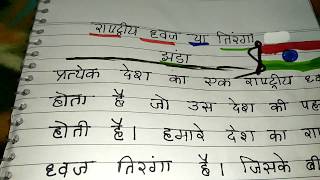 राष्ट्रीय ध्वज या तिरंगा
झंडा
प्रत्येक देश का एक राष्ट्रीय
होता है जो उस देश की
होती है। हमारे देश का
ध्वज तिरंगा है। जिसके